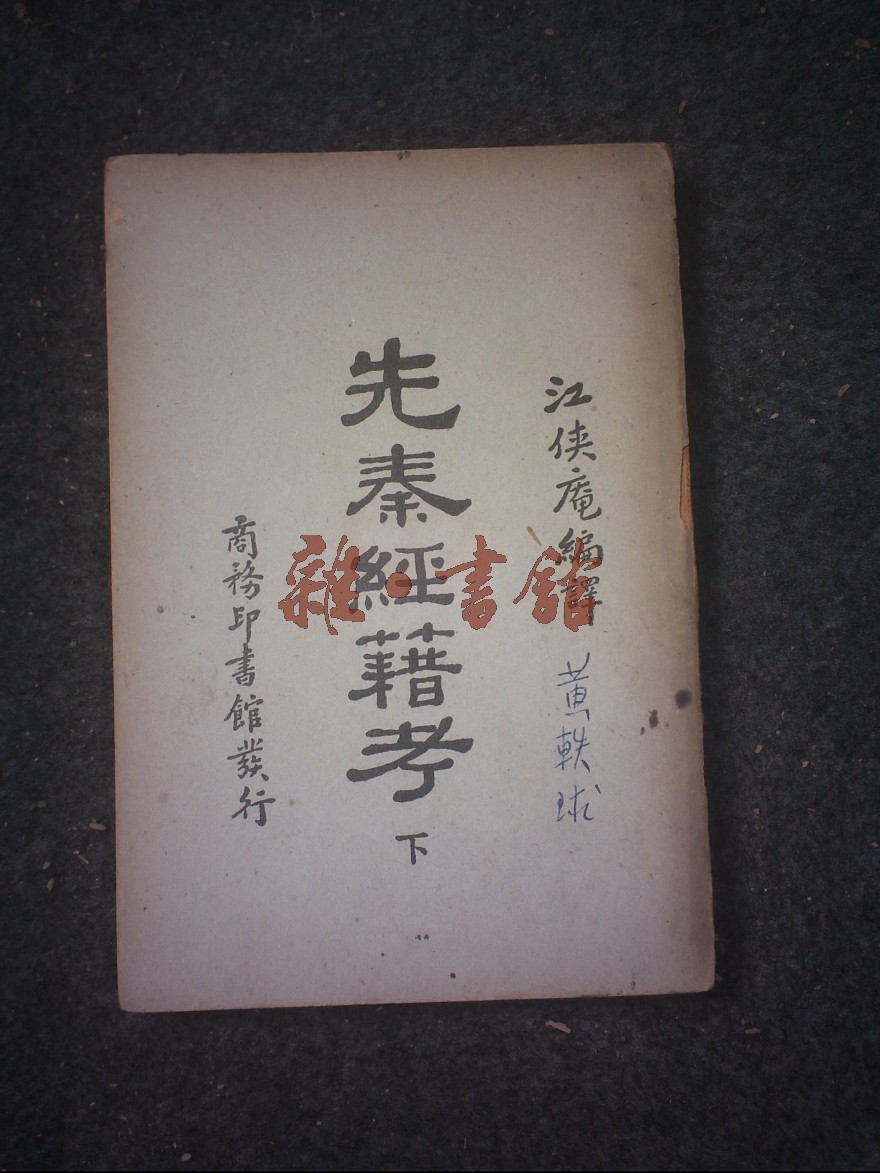 江俠庵編譯
黄軼球
先秦經籍考
下
商務印書館發行
雜·書館